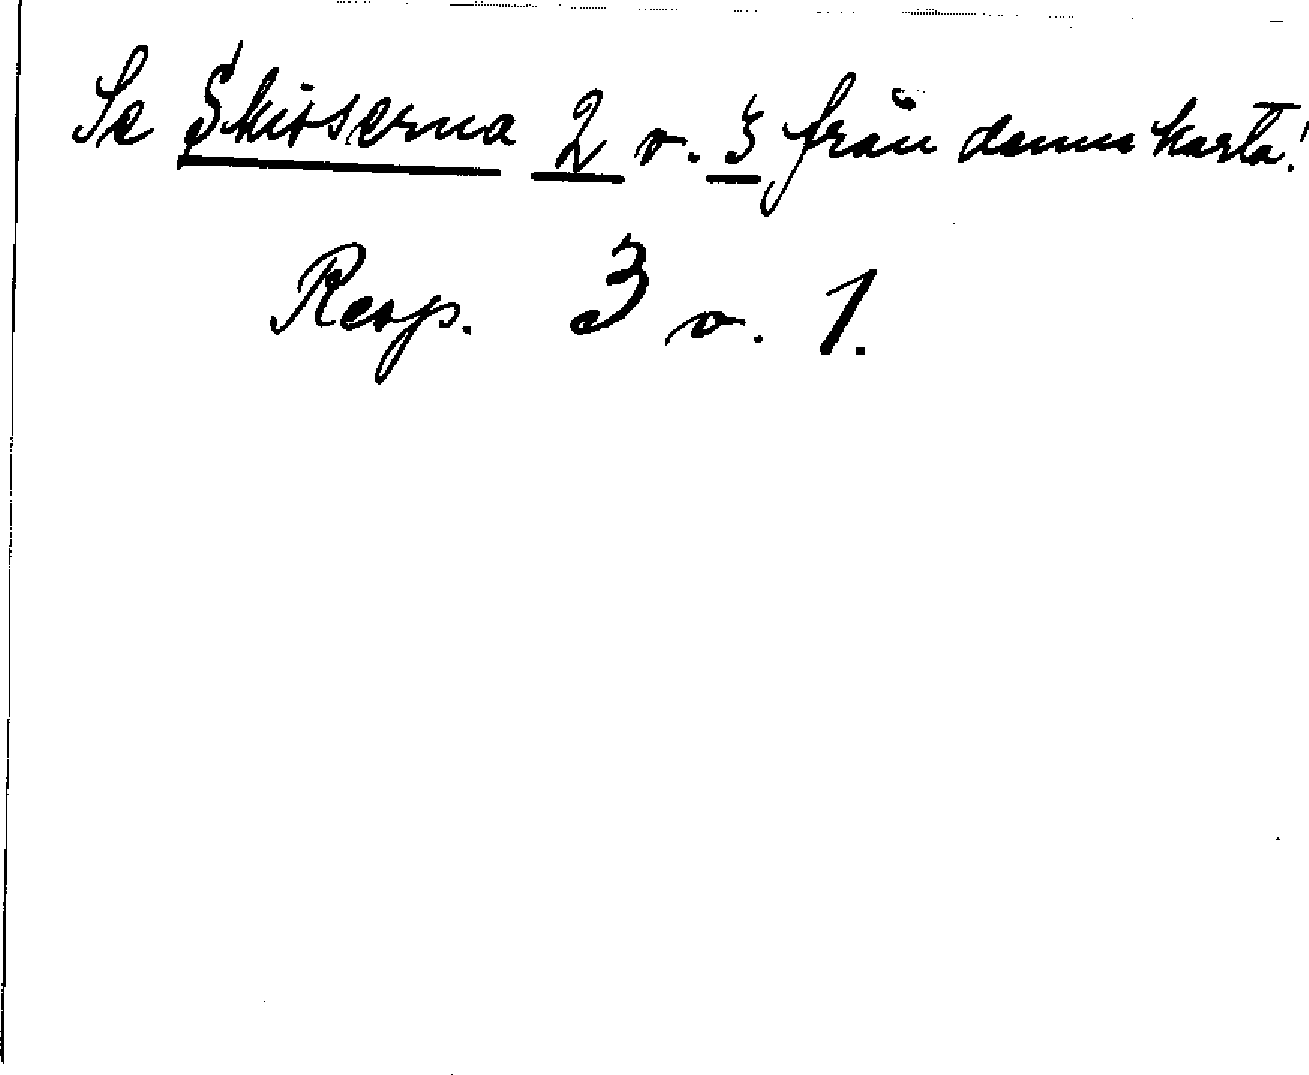 Se Skisserna 2 o. 3 från denna karta!
Resp. 3 o. 1.